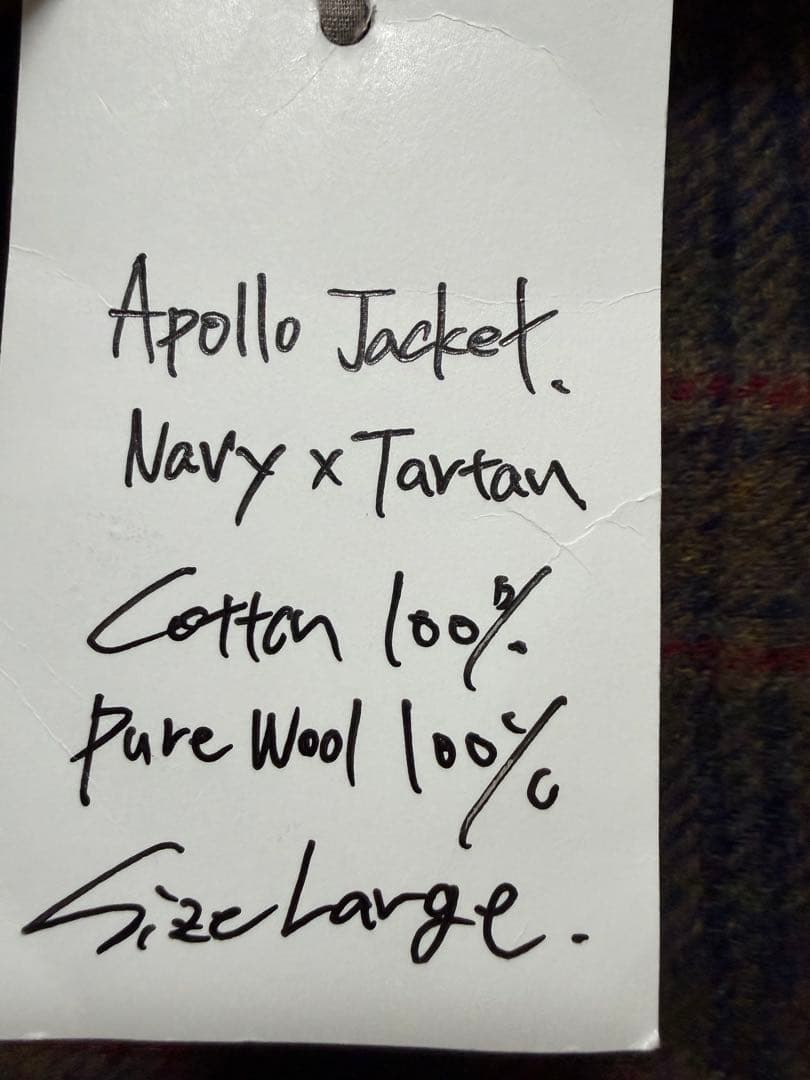 Apollo Jacket.
Navy x Tartan
Cotton 100%
Pure Wool 100%
Size Large.